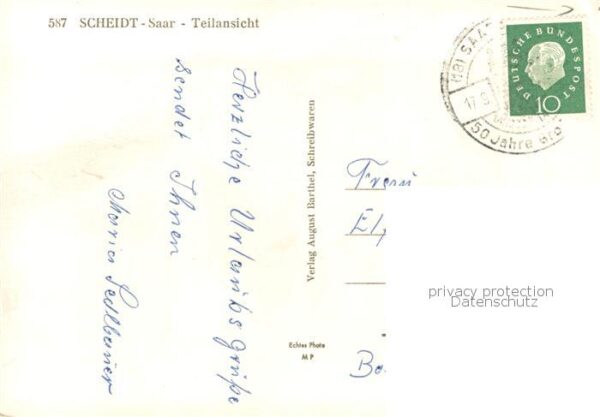 587 SCHEIDT - Saar - Teilansicht
Herzliche Urlaubsgrüße
sendet Ihnen
Maria
Verlag August Barthel, Schreibwaren
Echtes Photo
M P
DEUTSCHE BUNDESPOST
10
(18) SAA
17.9
50 Jahre
Frau
El
Ba
privacy protection
Datenschutz